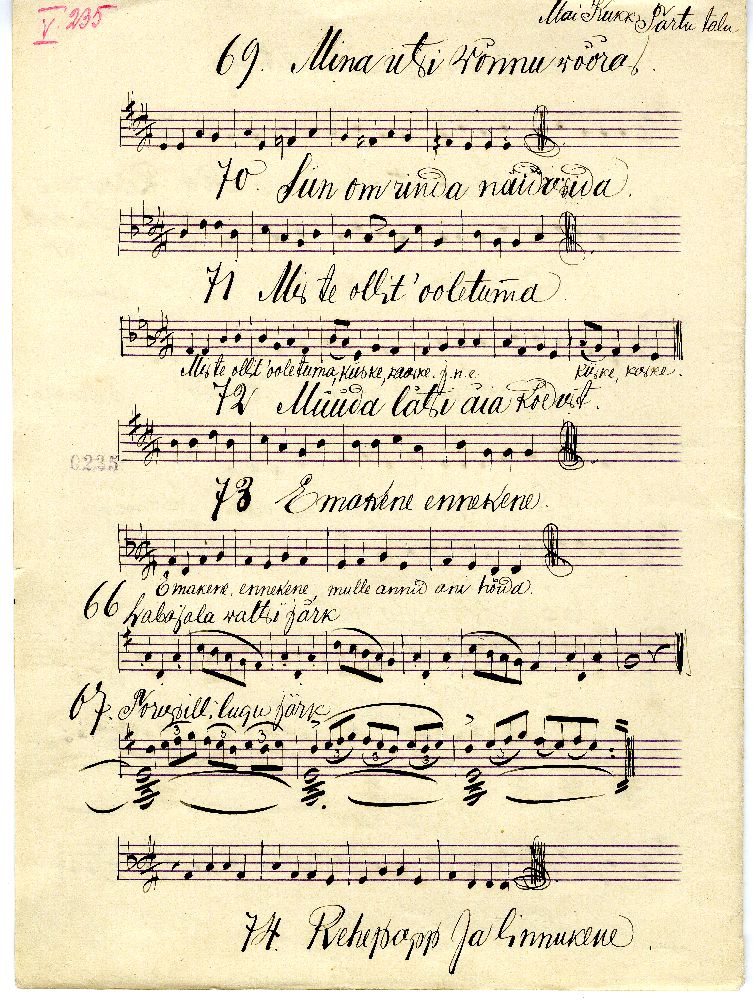 V. 235
Mai Kukk, Pärtu talu
69. Mina utsi Wõnnu wõõras.
70. Siin om rinda näidsida.
71 Mis te ollit' ooletuma
Mis te ollit' ooletuma, kuske, kaaske. j.n.e. kuske, kaske.
72 Müüda lätsi äia
0235
73 Emakene ennekene.
Emakene, ennekene, mulle annid ani hõida.
66 Labajala waltsi järk
67. Torupilli lugu järk
3 3 3 3 3 3 3 3
74. Rehepapp Ja linnukene.